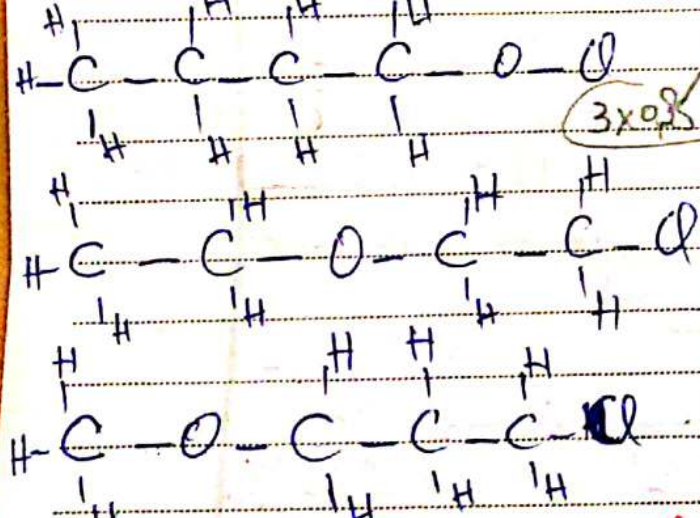 H H H H
H-C-C-C-C-O-Cl
H H H H
3x0,25
H H H H
H-C-C-O-C-C-Cl
H H H H
H H H H
H-C-O-C-C-C-Cl
H H H H